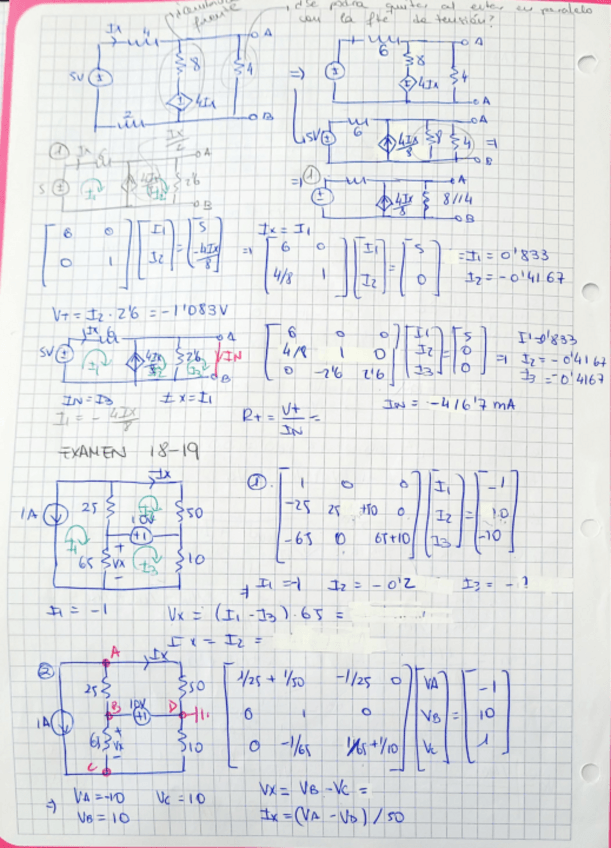 ¿Se podría quitar al estar en paralelo
con la fte de tensión?
Ix 4 A
5V 8 4
4Ix
2 B
=>
6 A
8
4Ix 4
A
5V 6 A
4Ix/8 8 4 =>
B
=> ①
A
4Ix/8 8/14
B
① Ix 6 Ix/2 A
5 I1 4Ix I2 2'6
B
[6 0; 0 1] [I1; I2] = [5; -4Ix/8] =>
Ix = I1
[6 0; 4/8 1] [I1; I2] = [5; 0] => I1 = 0'833
I2 = -0'4167
VT = I2 · 2'6 = -1'083V
Ix 6 A
5V I1 4Ix/8 I2 2'6 I3 IN
B
[6 0 0; 4/8 1 0; 0 -2'6 2'6] [I1; I2; I3] = [5; 0; 0] => I1=0'833
I2 = -0'4167
I3 = -0'4167
IN = I3 Ix = I1
I1 = - 4Ix/8
Rt = Vt/IN =
IN = -416'7 mA
EXAMEN 18-19
Ix
1A 25 I2 50
10V
I1 65 Vx I3 10
① [1 0 0; -25 25+50 0; -65 0 65+10] [I1; I2; I3] = [-1; 10; -10]
=> I1 = -1 I2 = -0'2 I3 = -1
I1 = -1 Vx = (I1 - I3) · 65 =
Ix = I2 =
② A Ix
25 50
B 10V D
1A 65 Vx 10
C
[1/25 + 1/50 -1/25 0; 0 1 0; 0 -1/65 1/65+1/10] [VA; VB; Vc] = [-1; 10; 1]
=> VA = -10 Vc = 10
VB = 10
Vx = VB - Vc =
Ix = (VA - VD) / 50